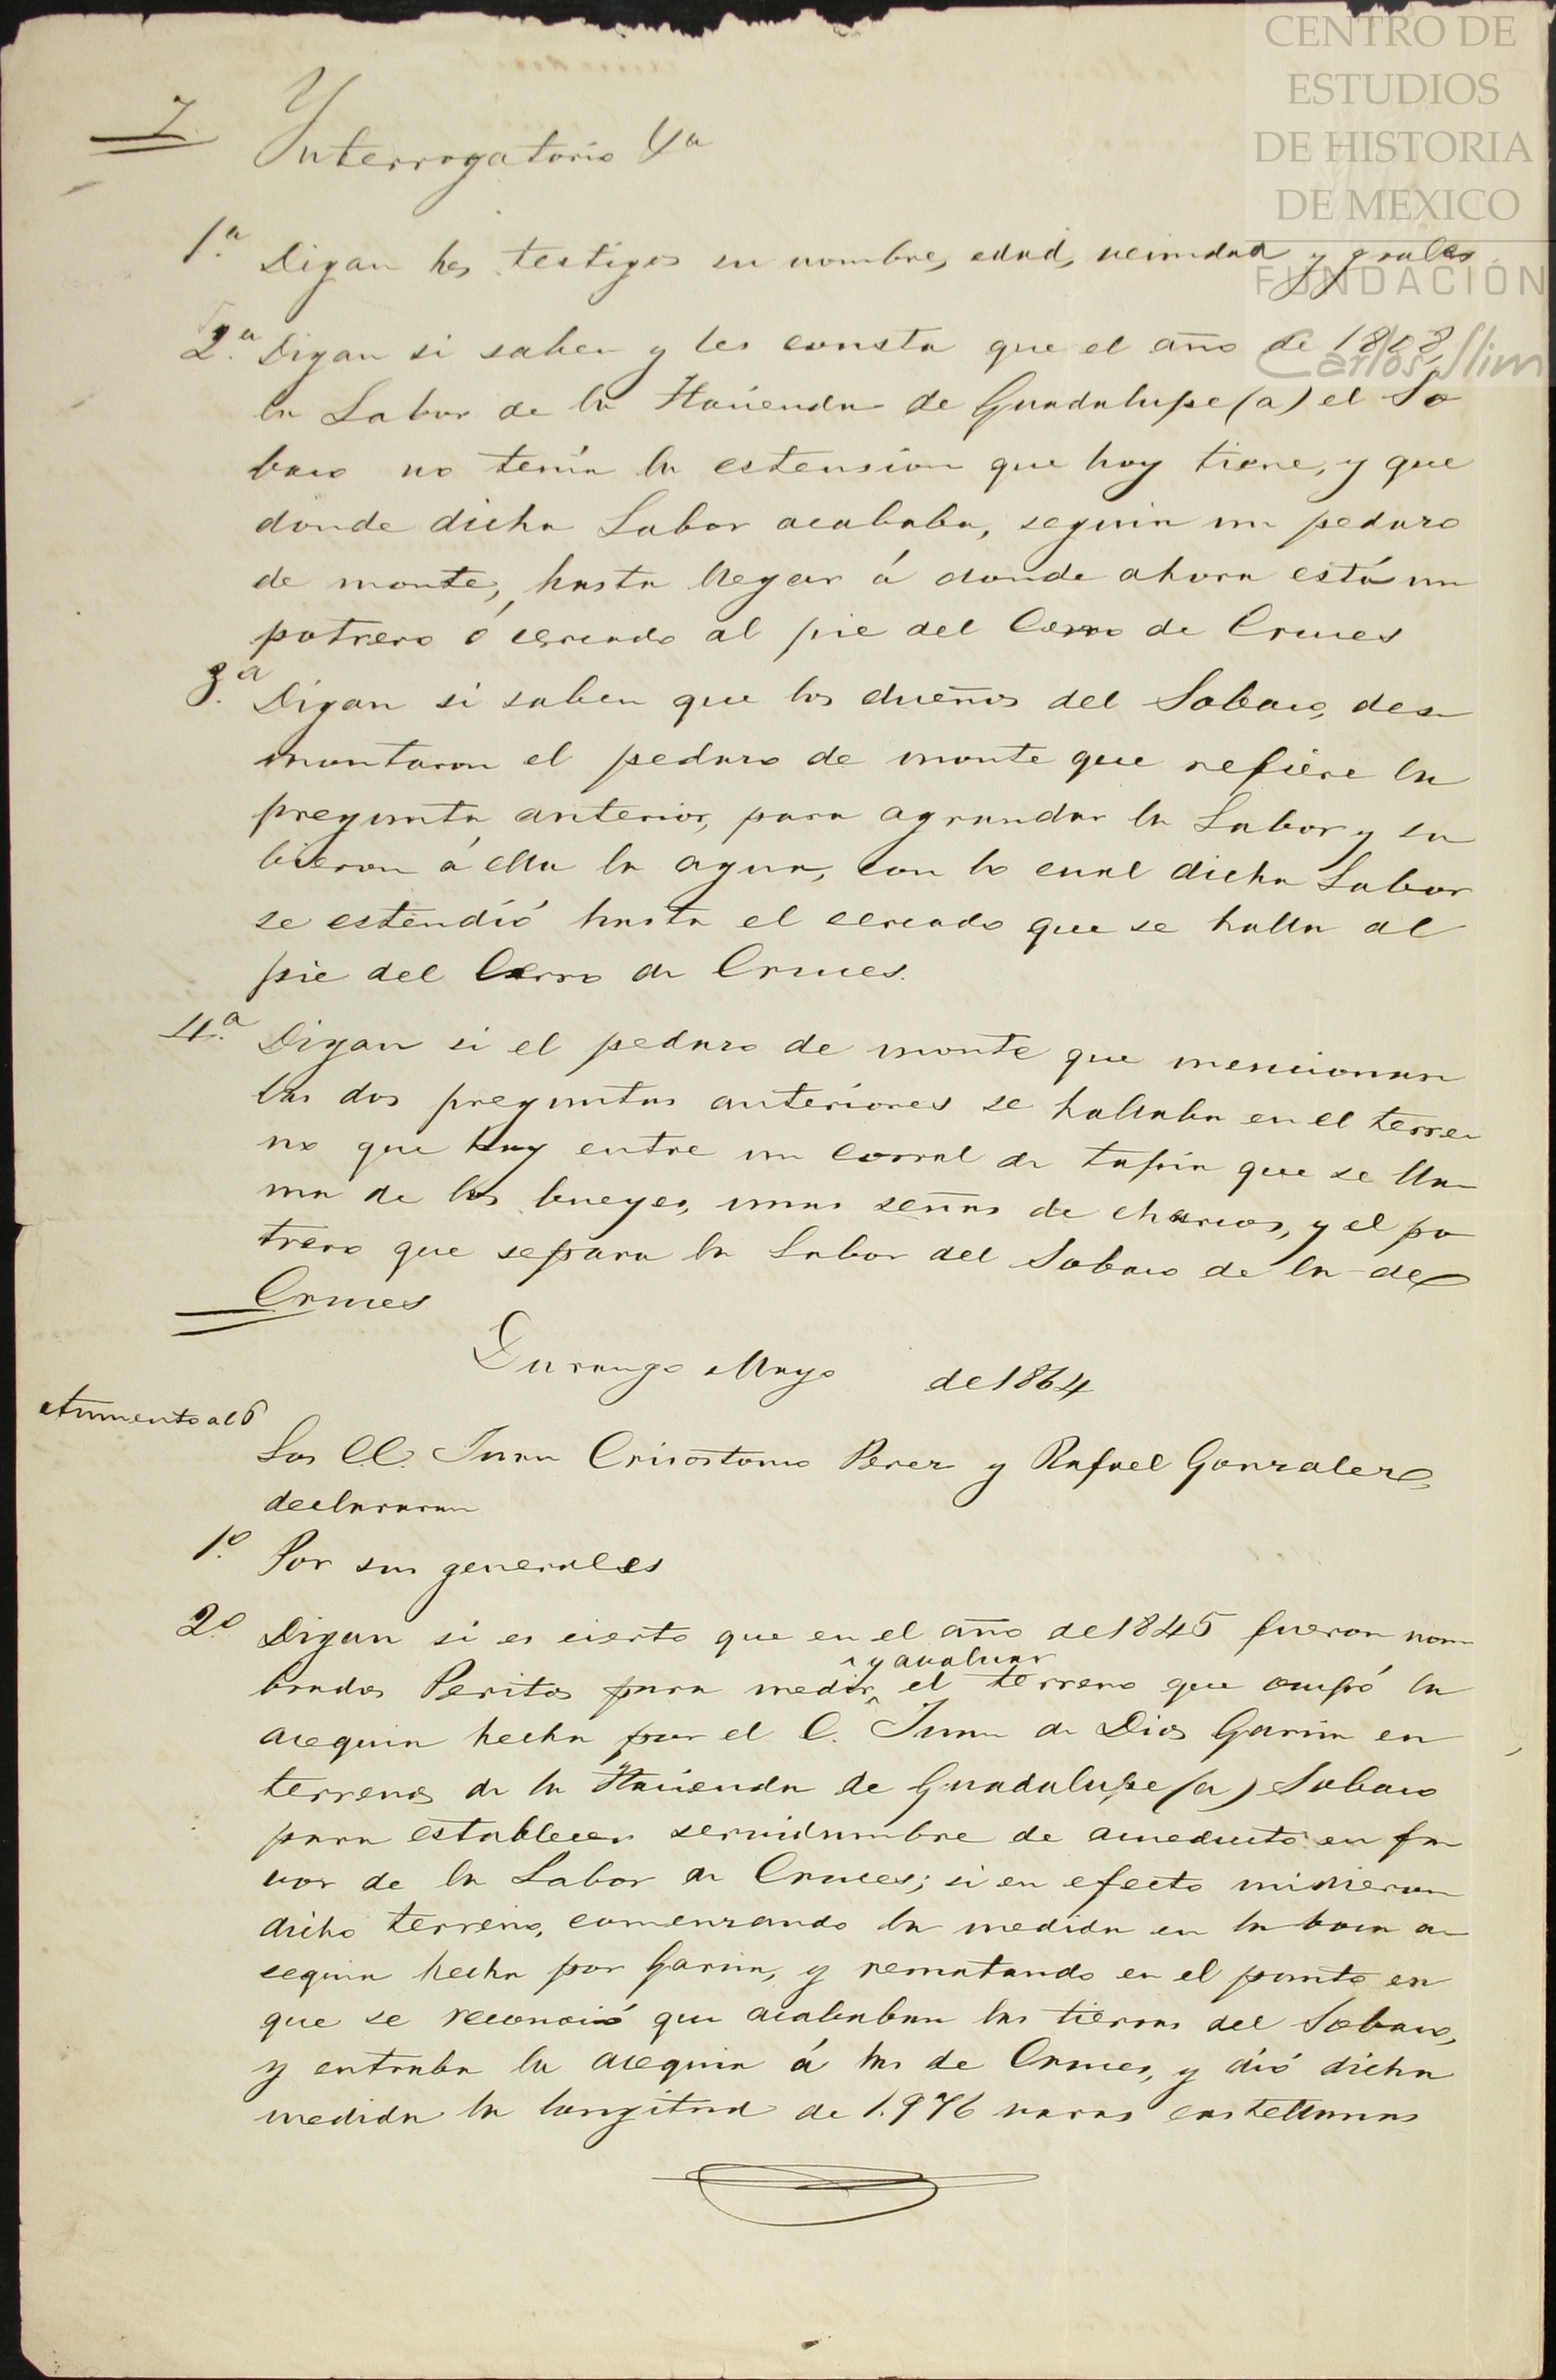 CENTRO DE
ESTUDIOS
DE HISTORIA
DE MEXICO
FUNDACIÓN
Carlos Slim
7.
Ynterrogatorio 4ª
1.ª Digan los testigos su nombre, edad, vecindad y grales
2.ª Digan si saben y les consta que el año de 1808,
la Labor de la Hacienda de Guadalupe (a) el So
baco no tenía la estension que hoy tiene, y que
donde dicha Labor acababa, seguia un pedazo
de monte, hasta llegar á donde ahora está un
potrero ó cercado al pie del Cerro de Cruces
3.ª Digan si saben que los dueños del Sobaco, des
montaron el pedazo de monte que refiere la
pregunta anterior, para agrandar la Labor y su
bieron á ella la agua, con lo cual dicha Labor
se estendió hasta el cercado que se halla al
pie del Cerro de Cruces.
4.ª Digan si el pedazo de monte que mencionan
las dos preguntas anteriores se hallaba en el terre
no que hay entre un corral de tapia que se lla
ma de los bueyes, unas señas de charcos, y el po
trero que separa la Labor del Sobaco de la de
Cruces
Durango Mayo de 1864
Aumento al 6
Los CC. Juan Crisostomo Perez y Rafael Gonzalez
declararan
1º Por sus generales
2º Digan si es cierto que en el año de 1845 fueron nom
y avaluar
brados Peritos para medir el terreno que ocupó la
acequia hecha por el C. Juan de Dios Garcia en
terrenos de la Hacienda de Guadalupe (a) Sobaco
para establecer servidumbre de acueducto en fa
vor de la Labor de Cruces; si en efecto midieron
dicho terreno, comenzando la medida en la boca a
cequia hecha por Garcia, y rematando en el punto en
que se reconoció que acababan las tierras del Sobaco,
y entraba la acequia á las de Cruces, y dió dicha
medida la longitud de 1.976 varas castellanas